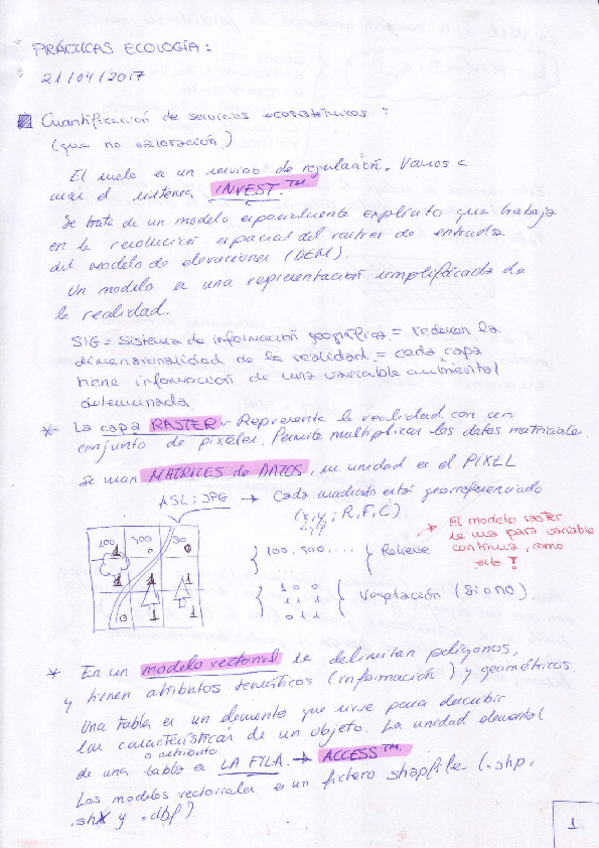 PRÁCTICAS ECOLOGÍA:
21/04/2017
Cuantificación de servicios ecosistémicos:
(que no valoración)
El suelo es un servicio de regulación. Vamos a
usar el sistema INVEST.™
Se trata de un modelo espacialmente explícito que trabaja
en la resolución espacial del raster de entrada
del modelo de elevaciones (DEM).
Un modelo es una representación simplificada de
la realidad.
SIG = Sistema de información geográfica = reducen la
dimensionalidad de la realidad = cada capa
tiene información de una variable ambiental
determinada.
* La capa RASTER - Representa la realidad con un
conjunto de píxeles. Permite multiplicar los datos matriciales.
Se usan MATRICES de DATOS, su unidad es el PIXEL
ASL; JPG → Cada cuadrado está georreferenciado
(x, y; R, F, C)
→ El modelo raster
se usa para variable
continua, como
esta!
100 300 30
1 0
1 1
1 1
0 1
100, 300, ... Relieve
...
1 0 0
1 1 1
0 1 1
Vegetación (Si o no).
* En un modelo vectorial se delimitan polígonos,
y tienen atributos temáticos (información) y geométricos.
Una tabla es un elemento que sirve para describir
las características de un objeto. La unidad elemental
o atributo
de una tabla es LA FILA. → ACCESS™.
Los modelos vectoriales es un fichero shapfile (.shp,
.shx y .dbf).
1